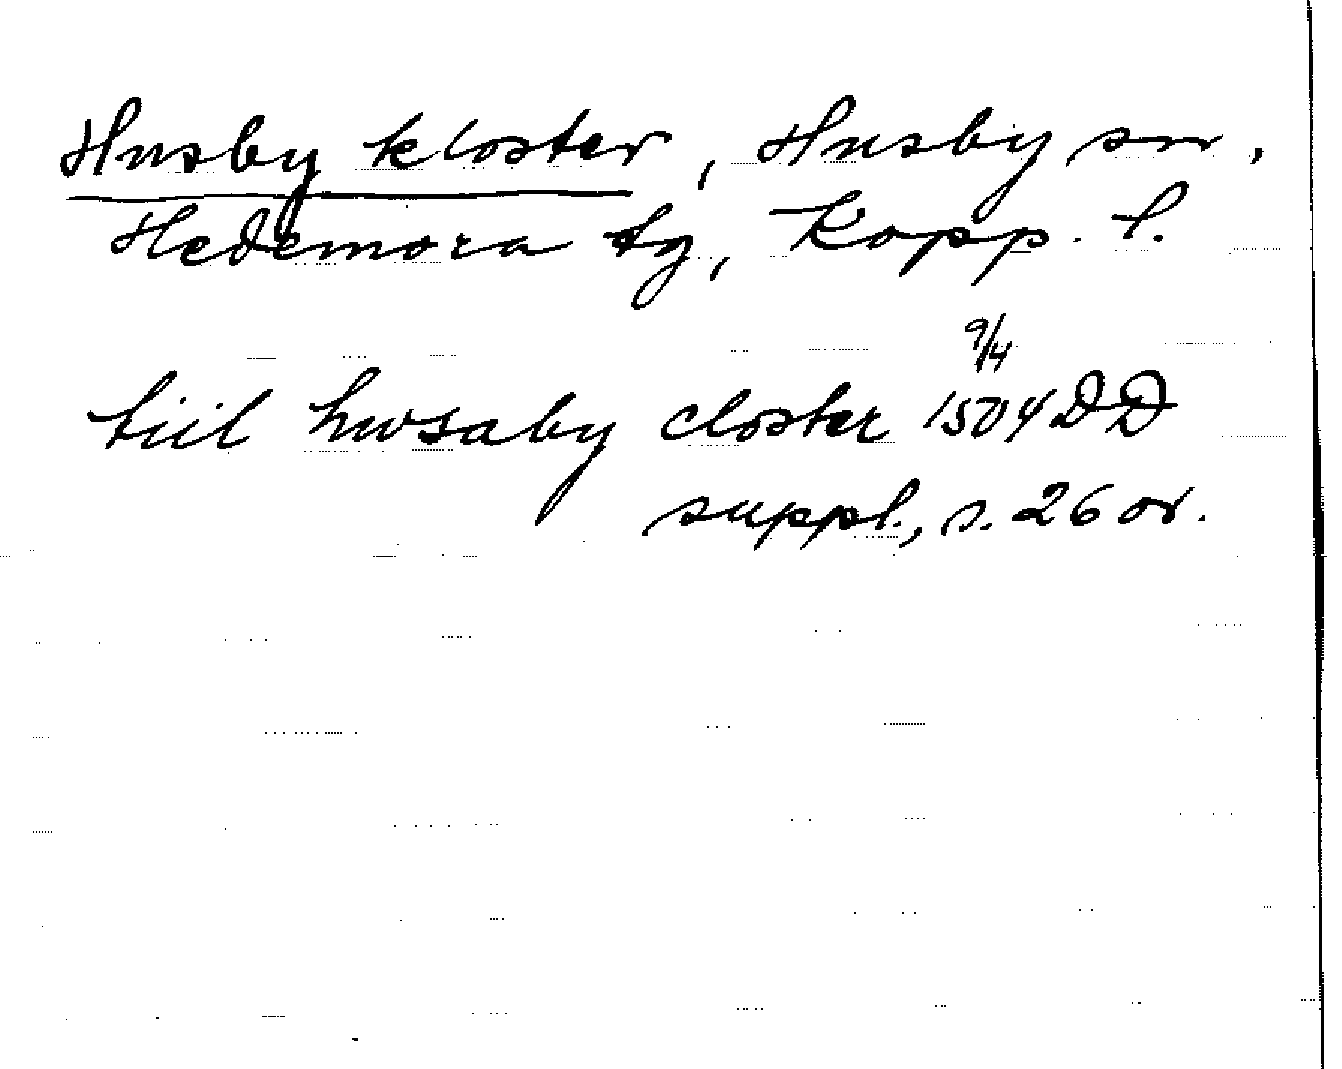 Husby kloster, Husby sn,
Hedemora tg, Kopp. l.
9/4
tiil hwsaby closter 1504 DD
suppl., s. 26 or.